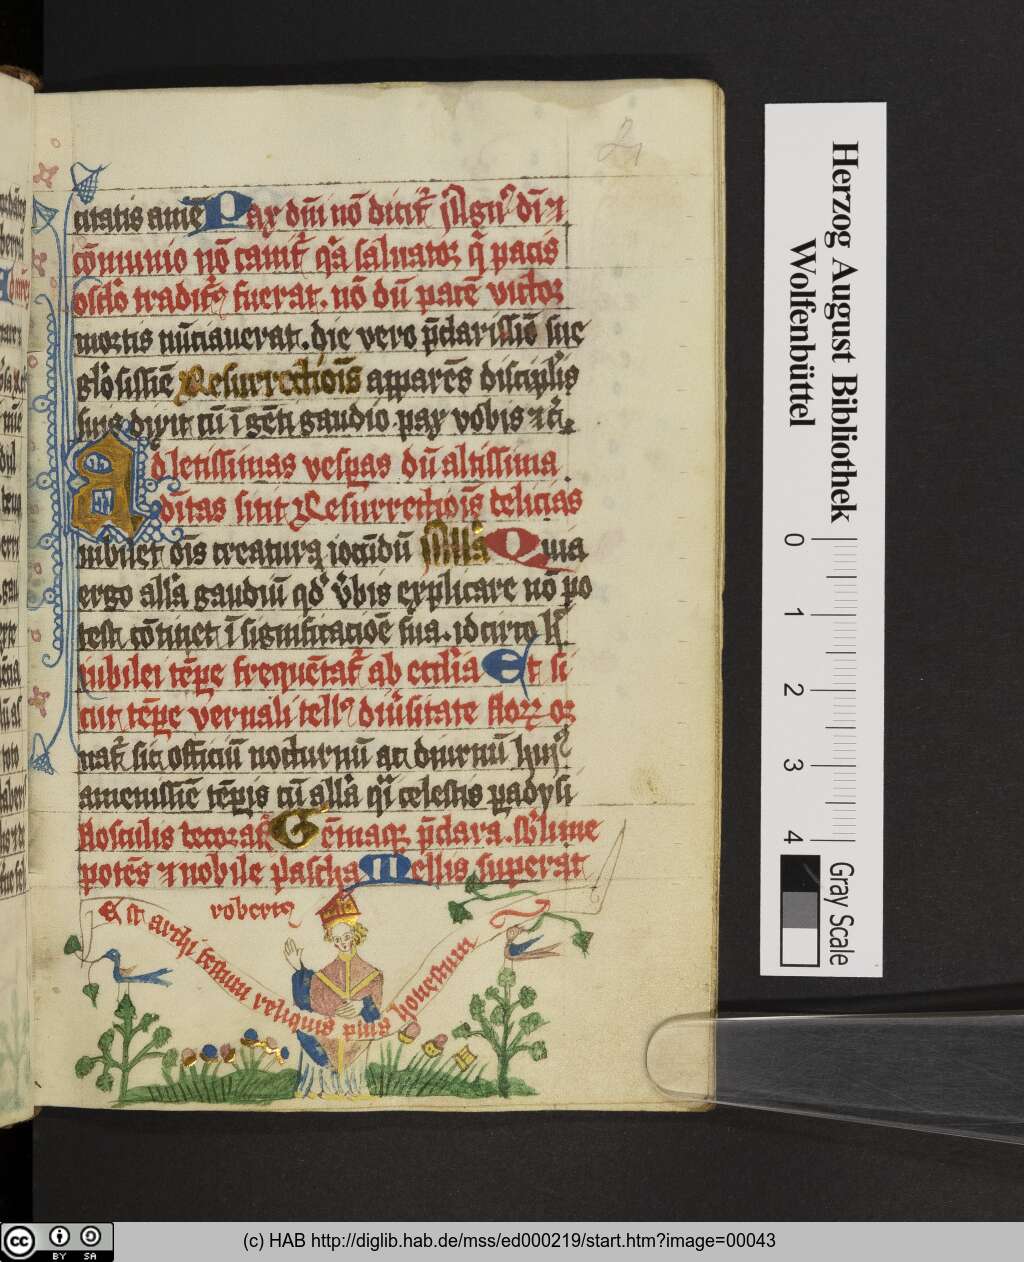 21
citatis amē Pax dñi nō dicit᷑ Agn⁹ dī ⁊
cōmunio nō canit᷑ qͣa saluator q̇ pacis
osclō tradit⁹ fuerat. nō dū pacē victor
mortis nūciauerat. die vero p̄clarissiē sue
glo̓sissiē Resurrectiōis apparēs discipl̓is
suis dixit cū īgēti gaudio. pax vobis ⁊c̃.
Ad letissimas vesp̱as dū altissima
dīitas sinit Resurrectiōis delicias
iubilet oīs creatura iocūdū All̓a Quia
ergo all̓a gaudiū qd̓ v̓bis explicare nō po
test cōtinet ī significatiōe sua. idcirco h̓
iubilei tēp̱e frequētat᷑ ab eccl̓ia Et si
cut tēp̱e vernali tell⁹ diu̓sitate floꝝ or
nat᷑ sic officiū nocturnū ac diurnū hui⁹
amenissiē tēp̱is cū all̓a q̇ celestis p̱adysi
flosculis decorat᷑ Gēmaqꝫ p̄clara. sb̓lime
potēs ⁊ nobile pascha Mellis superat
Est archi festum reliquis pius honestum
robertꝰ
Herzog August Bibliothek
Wolfenbüttel
0 1 2 3 4
Gray Scale
cc BY SA
(c) HAB http://diglib.hab.de/mss/ed000219/start.htm?image=00043